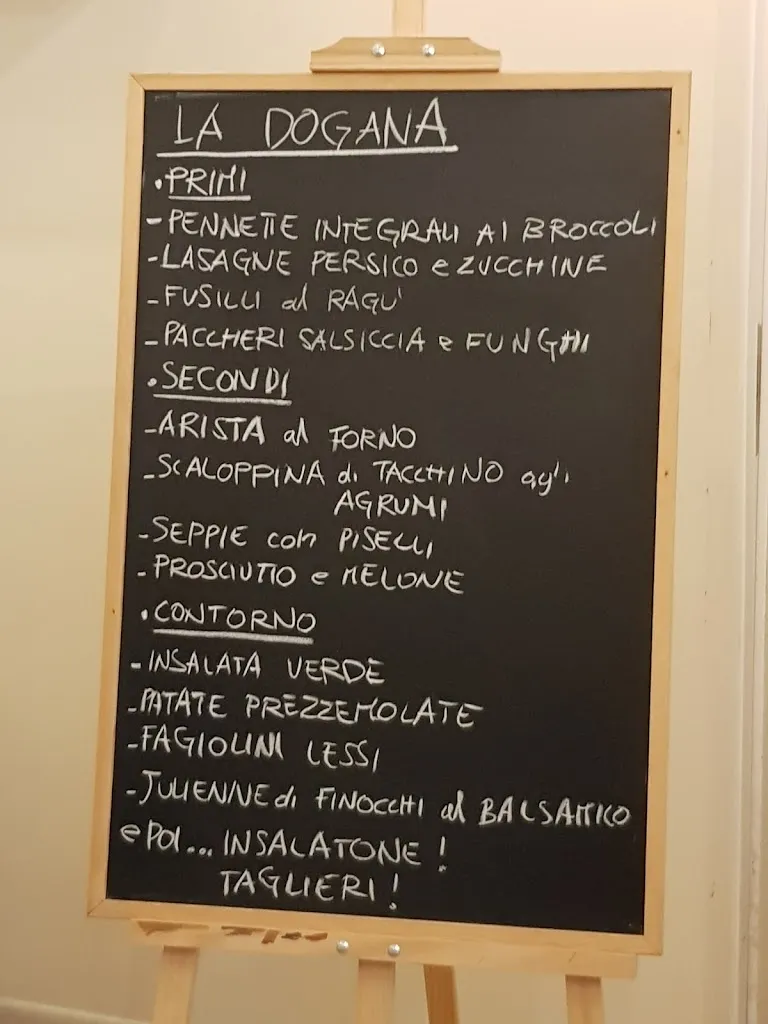 LA DOGANA
• PRIMI
- PENNETTE INTEGRALI AI BROCCOLI
- LASAGNE PERSICO e ZUCCHINE
- FUSILLI al RAGU'
- PACCHERI SALSICCIA e FUNGHI
• SECONDI
- ARISTA al FORNO
- SCALOPPINA di TACCHINO agli
AGRUMI
- SEPPIE con PISELLI
- PROSCIUTTO e MELONE
• CONTORNO
- INSALATA VERDE
- PATATE PREZZEMOLATE
- FAGIOLINI LESSI
- JULIENNE di FINOCCHI al BALSAMICO
e POI... INSALATONE !
TAGLIERI !